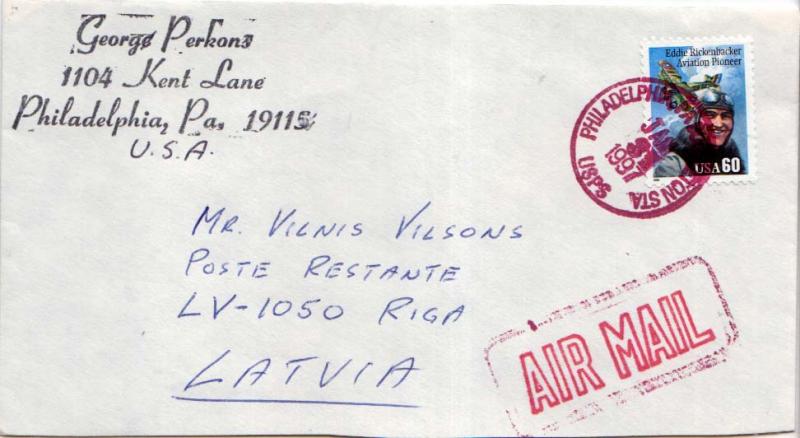 George Perkons
1104 Kent Lane
Philadelphia, Pa. 19115
U.S.A.
Eddie Rickenbacker
Aviation Pioneer
USA 60
PHILADELPHIA
JAN
1997
USPS
STA
MR. VILNIS VILSONS
POSTE RESTANTE
LV-1050 RIGA
LATVIA
AIR MAIL